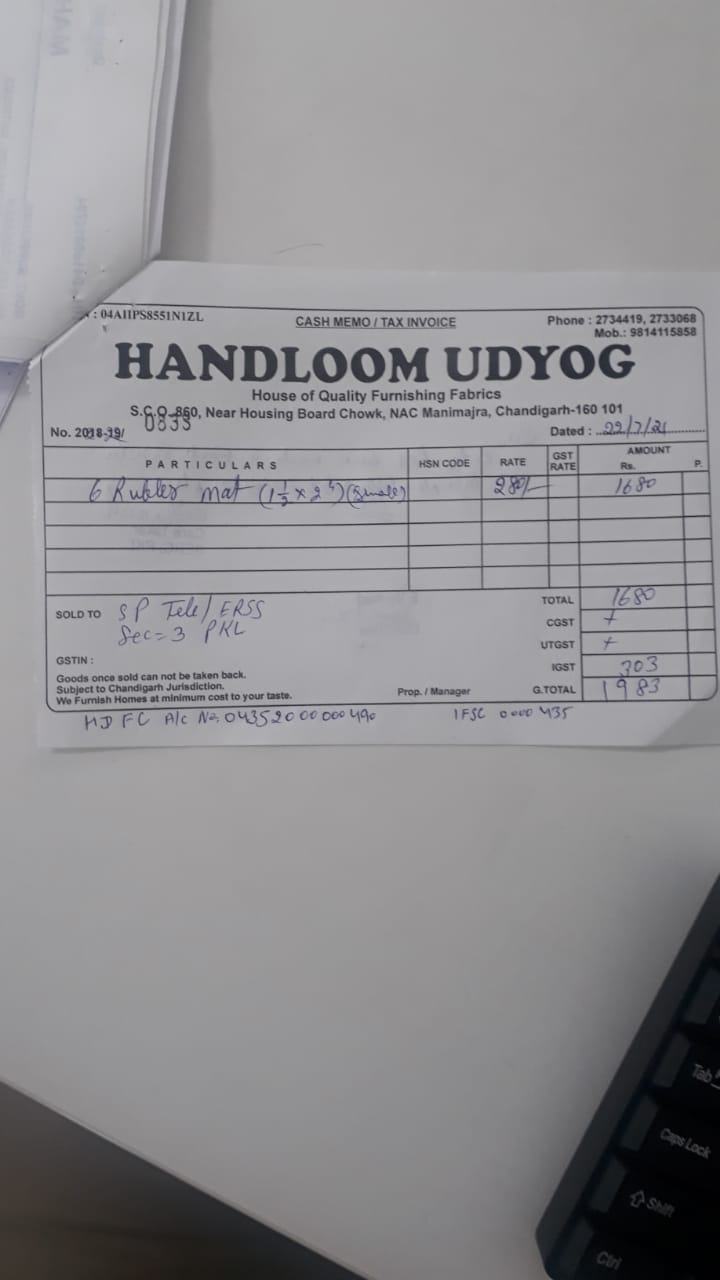 : 04AIIPS8551N1ZL
CASH MEMO / TAX INVOICE
Phone : 2734419, 2733068
Mob.: 9814115858
HANDLOOM UDYOG
House of Quality Furnishing Fabrics
S.C.O. 860, Near Housing Board Chowk, NAC Manimajra, Chandigarh-160 101
No. 2018-19/ 0835
Dated : 22/7/21
PARTICULARS HSN CODE RATE GST RATE AMOUNT Rs. P.
6 Rubler mat (1½ x 2') (Small) 280/- 1680
TOTAL 1680
SOLD TO SP Tele/ ERSS
Sec=3 PKL
CGST +
UTGST +
GSTIN :
IGST 303
Goods once sold can not be taken back.
Subject to Chandigarh Jurisdiction.
We Furnish Homes at minimum cost to your taste.
Prop. / Manager
G.TOTAL 1983
HDFC A/c No. 04352000000490 IFSC 0000435
Tab
Caps Lock
Shift
Ctrl